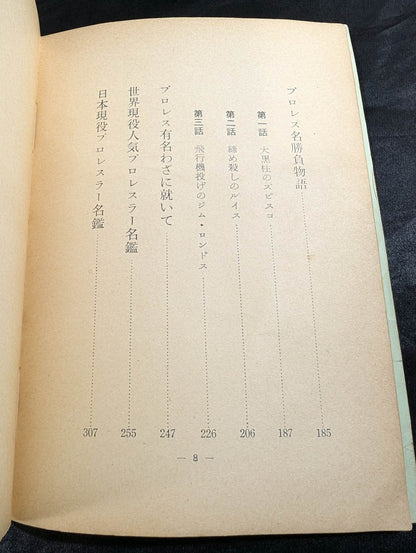 プロレス名勝負物語……185
第一話 大黒柱のズビスコ……187
第二話 締め殺しのルイス……206
第三話 飛行機投げのジム・ロンドス……226
プロレス有名わざに就いて……247
世界現役人気プロレスラー名鑑……255
日本現役プロレスラー名鑑……307
— 8 —